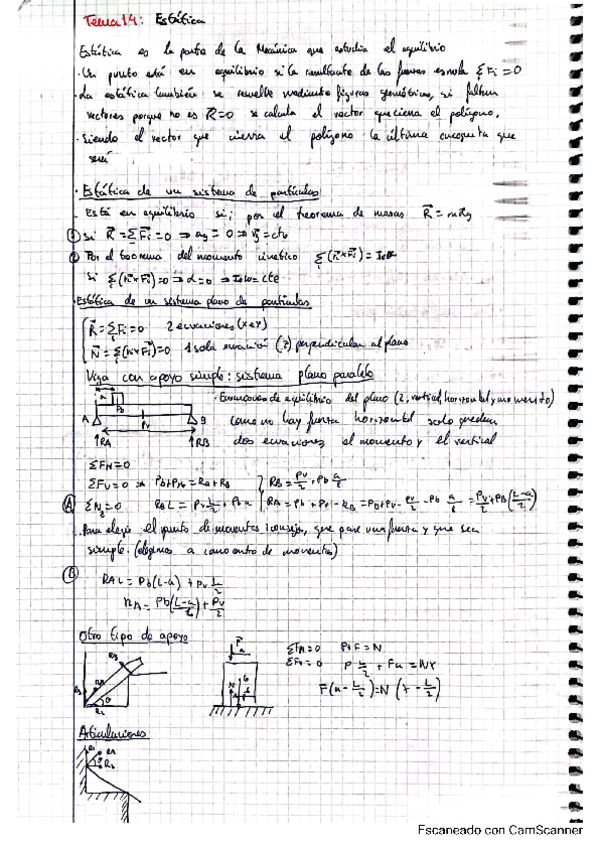 Tema 14: Estática
Estática es la parte de la Mecánica que estudia el equilibrio
· Un punto está en equilibrio si la resultante de las fuerzas es nula ΣFi = 0
· La estática también se resuelve mediante figuras geométricas, si faltan
vectores porque no es R=0 se calcula el vector que cierra el polígono.
· Siendo el vector que cierra el polígono la última incognita que
será
· Estática de un sistema de partículas
Está en equilibrio si; por el teorema de masas R =
① si R = ΣFi = 0 ⇒ ag = 0 ⇒ vg = cte
② Por el teorema del momento cinetico Σ(ri×Fi) =
si Σ(ri×Fi)=0 ⇒ α=0 ⇒ Iow= cte
· Estática de un sistema plano de partículas
R = ΣFi = 0 2 ecuaciones (x e y)
N = Σ(ri×Fi)=0 1 sola ecuación (z) perpendicular al plano
Viga con apoyo simple: sistema plano paralelo
· Ecuaciones de equilibrio del plano (2, vertical, horizontal y momento)
como no hay fuerza horizontal solo quedan
dos ecuaciones el momento y el vertical
a Pb Pv A B
RA RB
ΣFH=0
ΣFV=0 ⇒ Pb+Pv = RA+RB RB = Pv/2 + Pb a/L
Ⓐ RB L = Pv L/2 + Pb a RA = Pb + Pv - RB = Pb+Pv- Pv/2 - Pb a/L =
· Para elegir el punto de momentos consejo, que pase una fuerza y que sea
simple. (elegimos A como centro de momentos)
Ⓑ RA L = Pb(L-a) + Pv L/2
Otro tipo de apoyo
P+F=N
Articulaciones
Escaneado con CamScanner